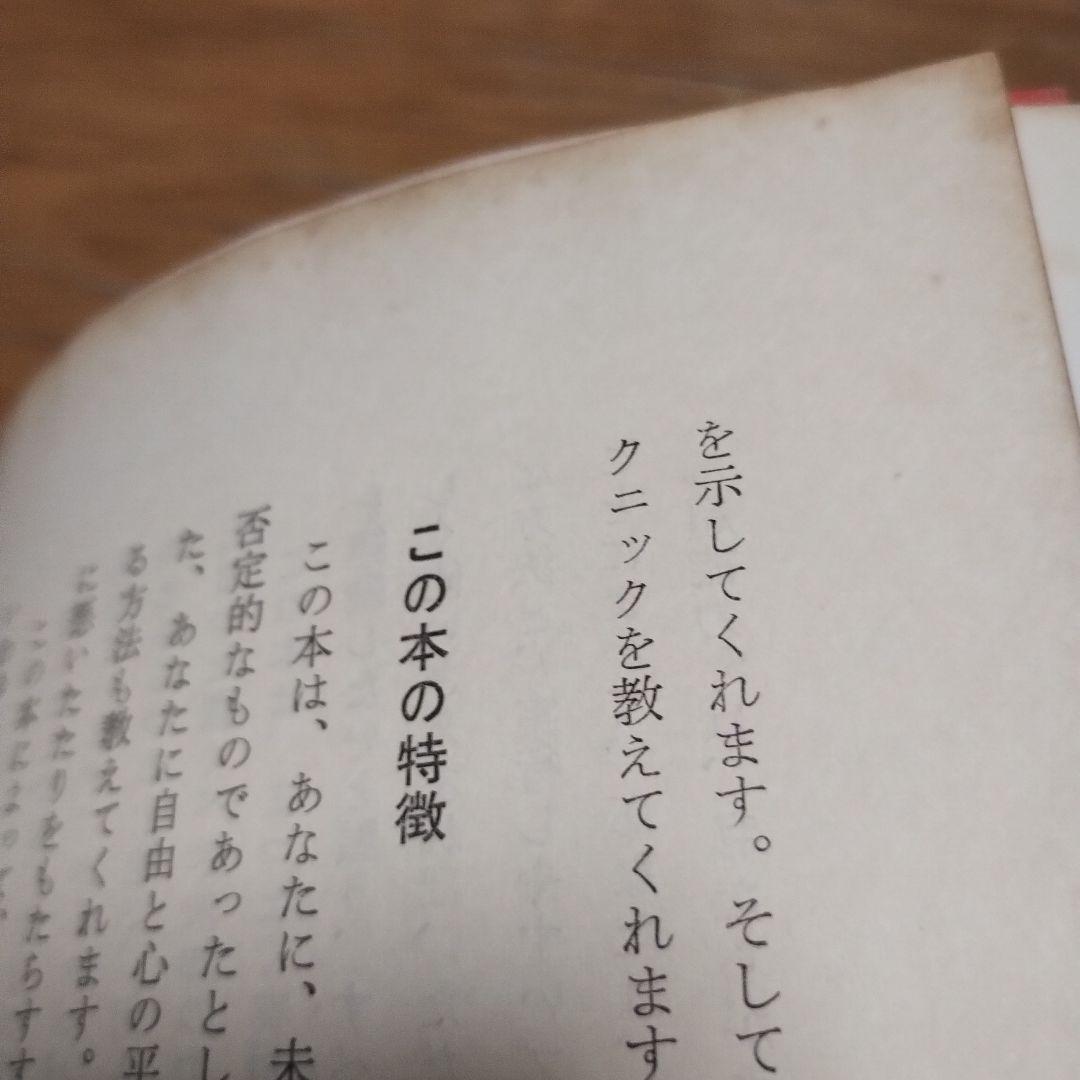 を示してくれます。そして
クニックを教えてくれます
この本の特徴
この本は、あなたに、未
否定的なものであったとし
た、あなたに自由と心の平
る方法も教えてくれます。
に悪いたたりをもたらす
この本によって